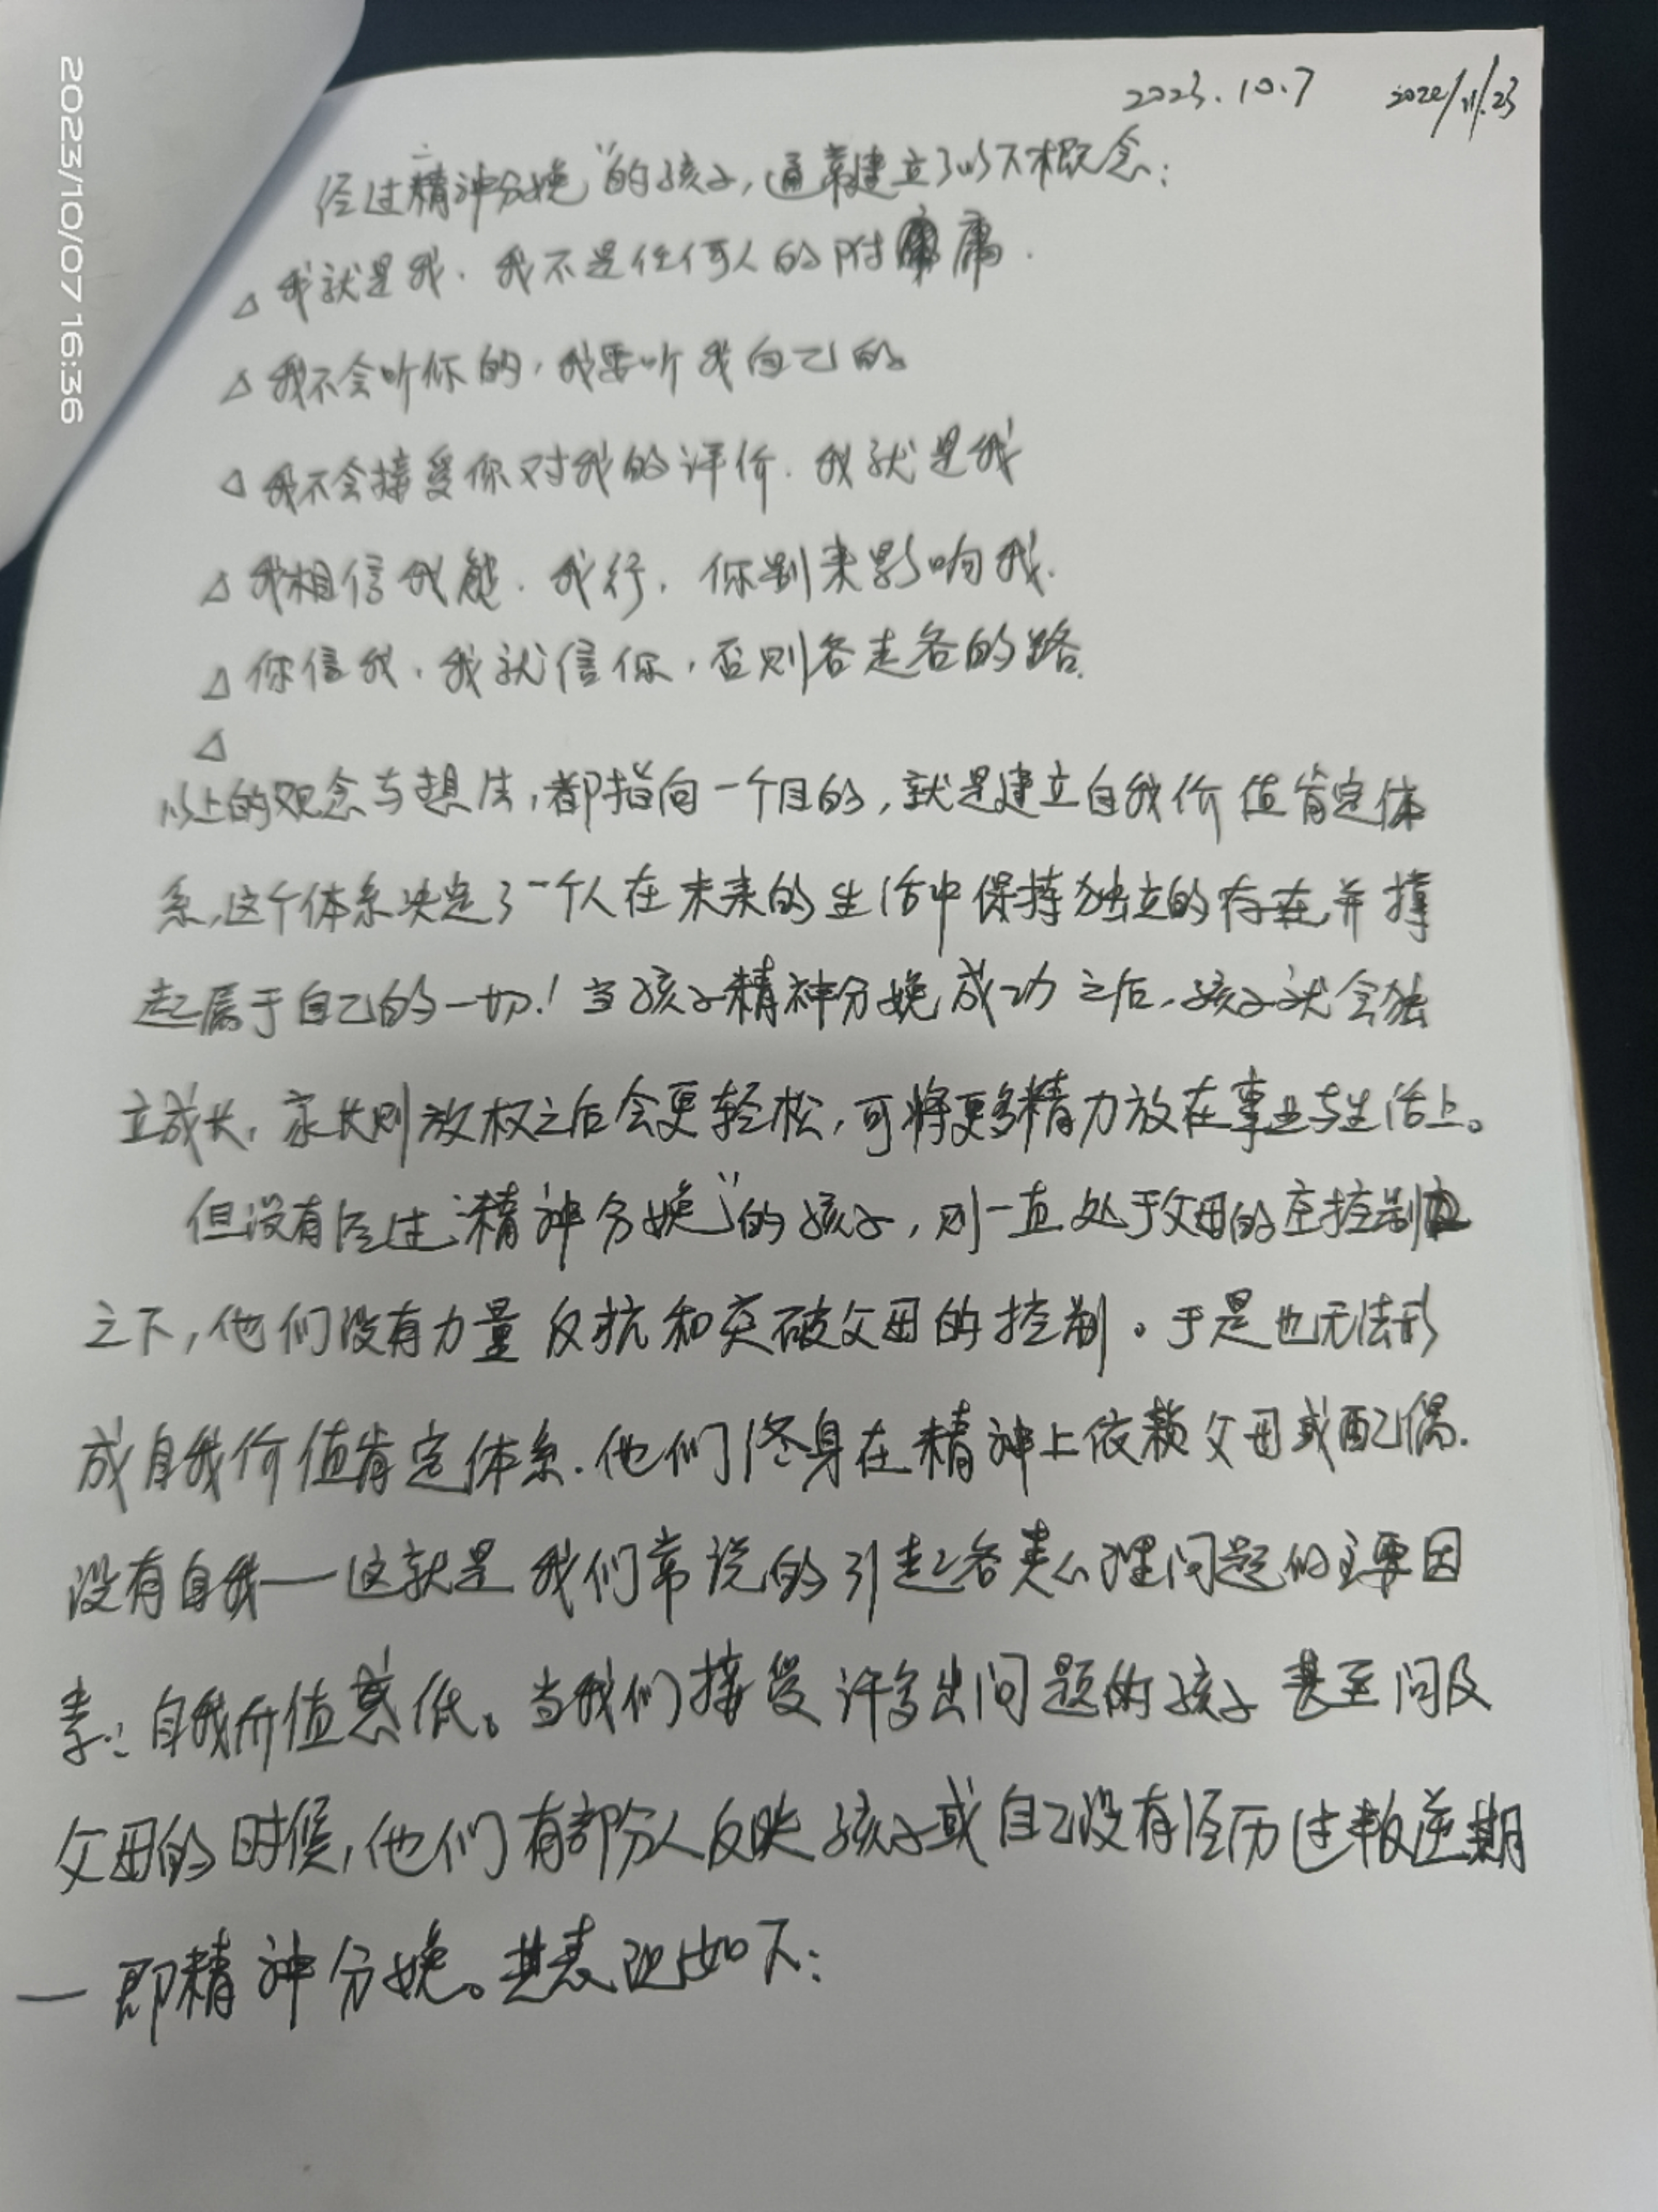 2023/10/07 16:36
2023.10.7 2022/11/23
经过“精神分娩”的孩子，通常建立了以下概念：
△ 我就是我．我不是任何人的附庸．
△ 我不会听你的，我要听我自己的
△ 我不会接受你对我的评价．我就是我
△ 我相信我能．我行．你别来影响我．
△ 你信我．我就信你，否则各走各的路．
△
以上的观念与想法，都指向一个目的，就是建立自我价值肯定体
系，这个体系决定了一个人在未来的生活中保持独立的存在并撑
起属于自己的一切！当孩子精神分娩成功之后，孩子就会独
立成长，家长则放权之后会更轻松，可将更多精力放在事业与生活上。
但没有经过“精神分娩”的孩子，则一直处于父母的控制
之下，他们没有力量反抗和突破父母的控制。于是也无法形
成自我价值肯定体系．他们终身在精神上依赖父母或配偶．
没有自我——这就是我们常说的引起各类心理问题的主要因
素：自我价值感低。当我们接受许多出问题的孩子甚至问及
父母的时候，他们有部分人反映孩子或自己没有经历过叛逆期
—即精神分娩。其表现如下：